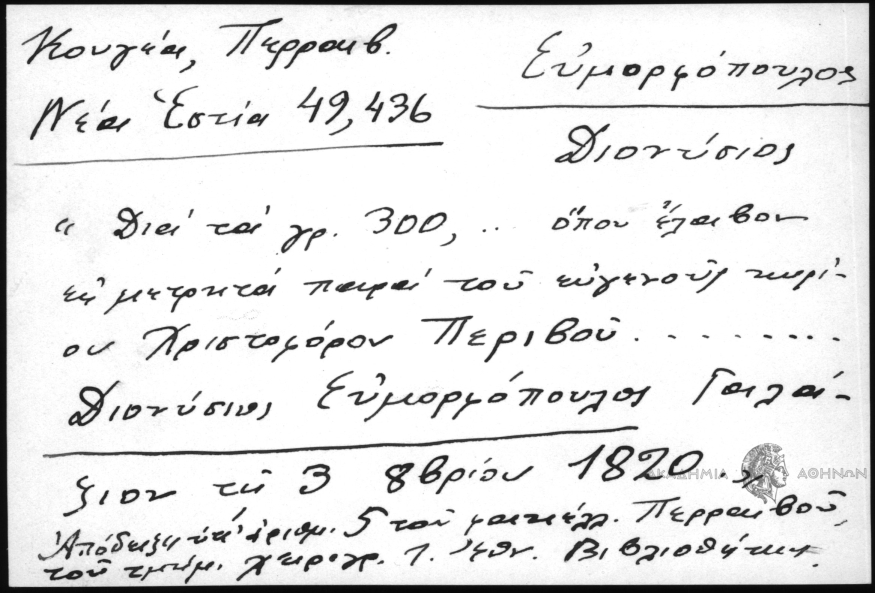 Κουγέα, Περραιβ.
Νέα Ἑστία 49, 436
Εὐμορφόπουλος
Διονύσιος
" Διά τά γρ. 300, .. ὅπου ἔλαβον
εἰς μετρητά παρά τοῦ εὐγενοῦς κυρί-
ου Χριστοφόρου Περιβοῦ . . . . . . . .
Διονύσιος Εὐμορφόπουλος Γαλά-
ζιον τῇ 3 8βρίου 1820 "
Ἀπόδειξη ὑπ' ἀριθμ. 5 τοῦ φακέλλ. Περραιβοῦ,
τοῦ τμήμ. χειρογρ. τ. Ἐθν. Βιβλιοθήκης.
ΑΚΑΔΗΜΙΑ ΑΘΗΝΩΝ